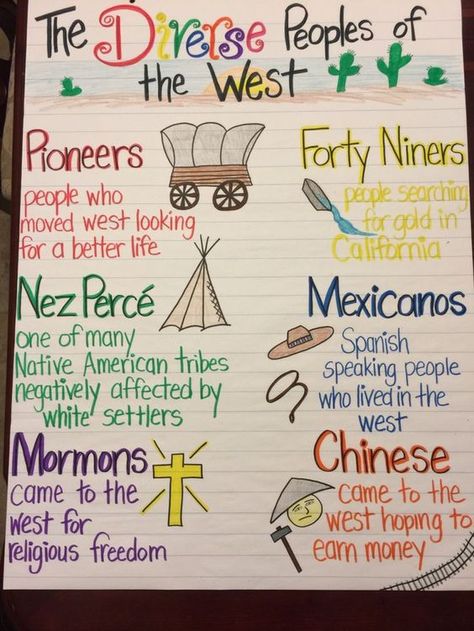 The Diverse Peoples of
the West
Pioneers
people who
moved west looking
for a better life
Forty Niners
people searching
for gold in
California
Nez Percé
one of many
Native American tribes
negatively affected by
white settlers
Mexicanos
Spanish
speaking people
who lived in the
west
Mormons
came to the
west for
religious freedom
Chinese
came to the
west hoping to
earn money